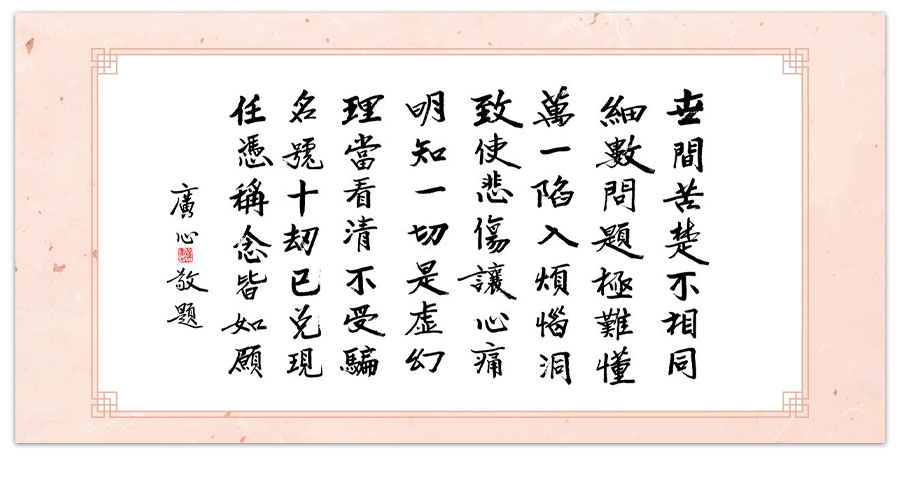 世間苦楚不相同
細數問題極難懂
萬一陷入煩惱洞
致使悲傷讓心痛
明知一切是虛幻
理當看清不受騙
名號十劫已兌現
任憑稱念皆如願
廣心敬題